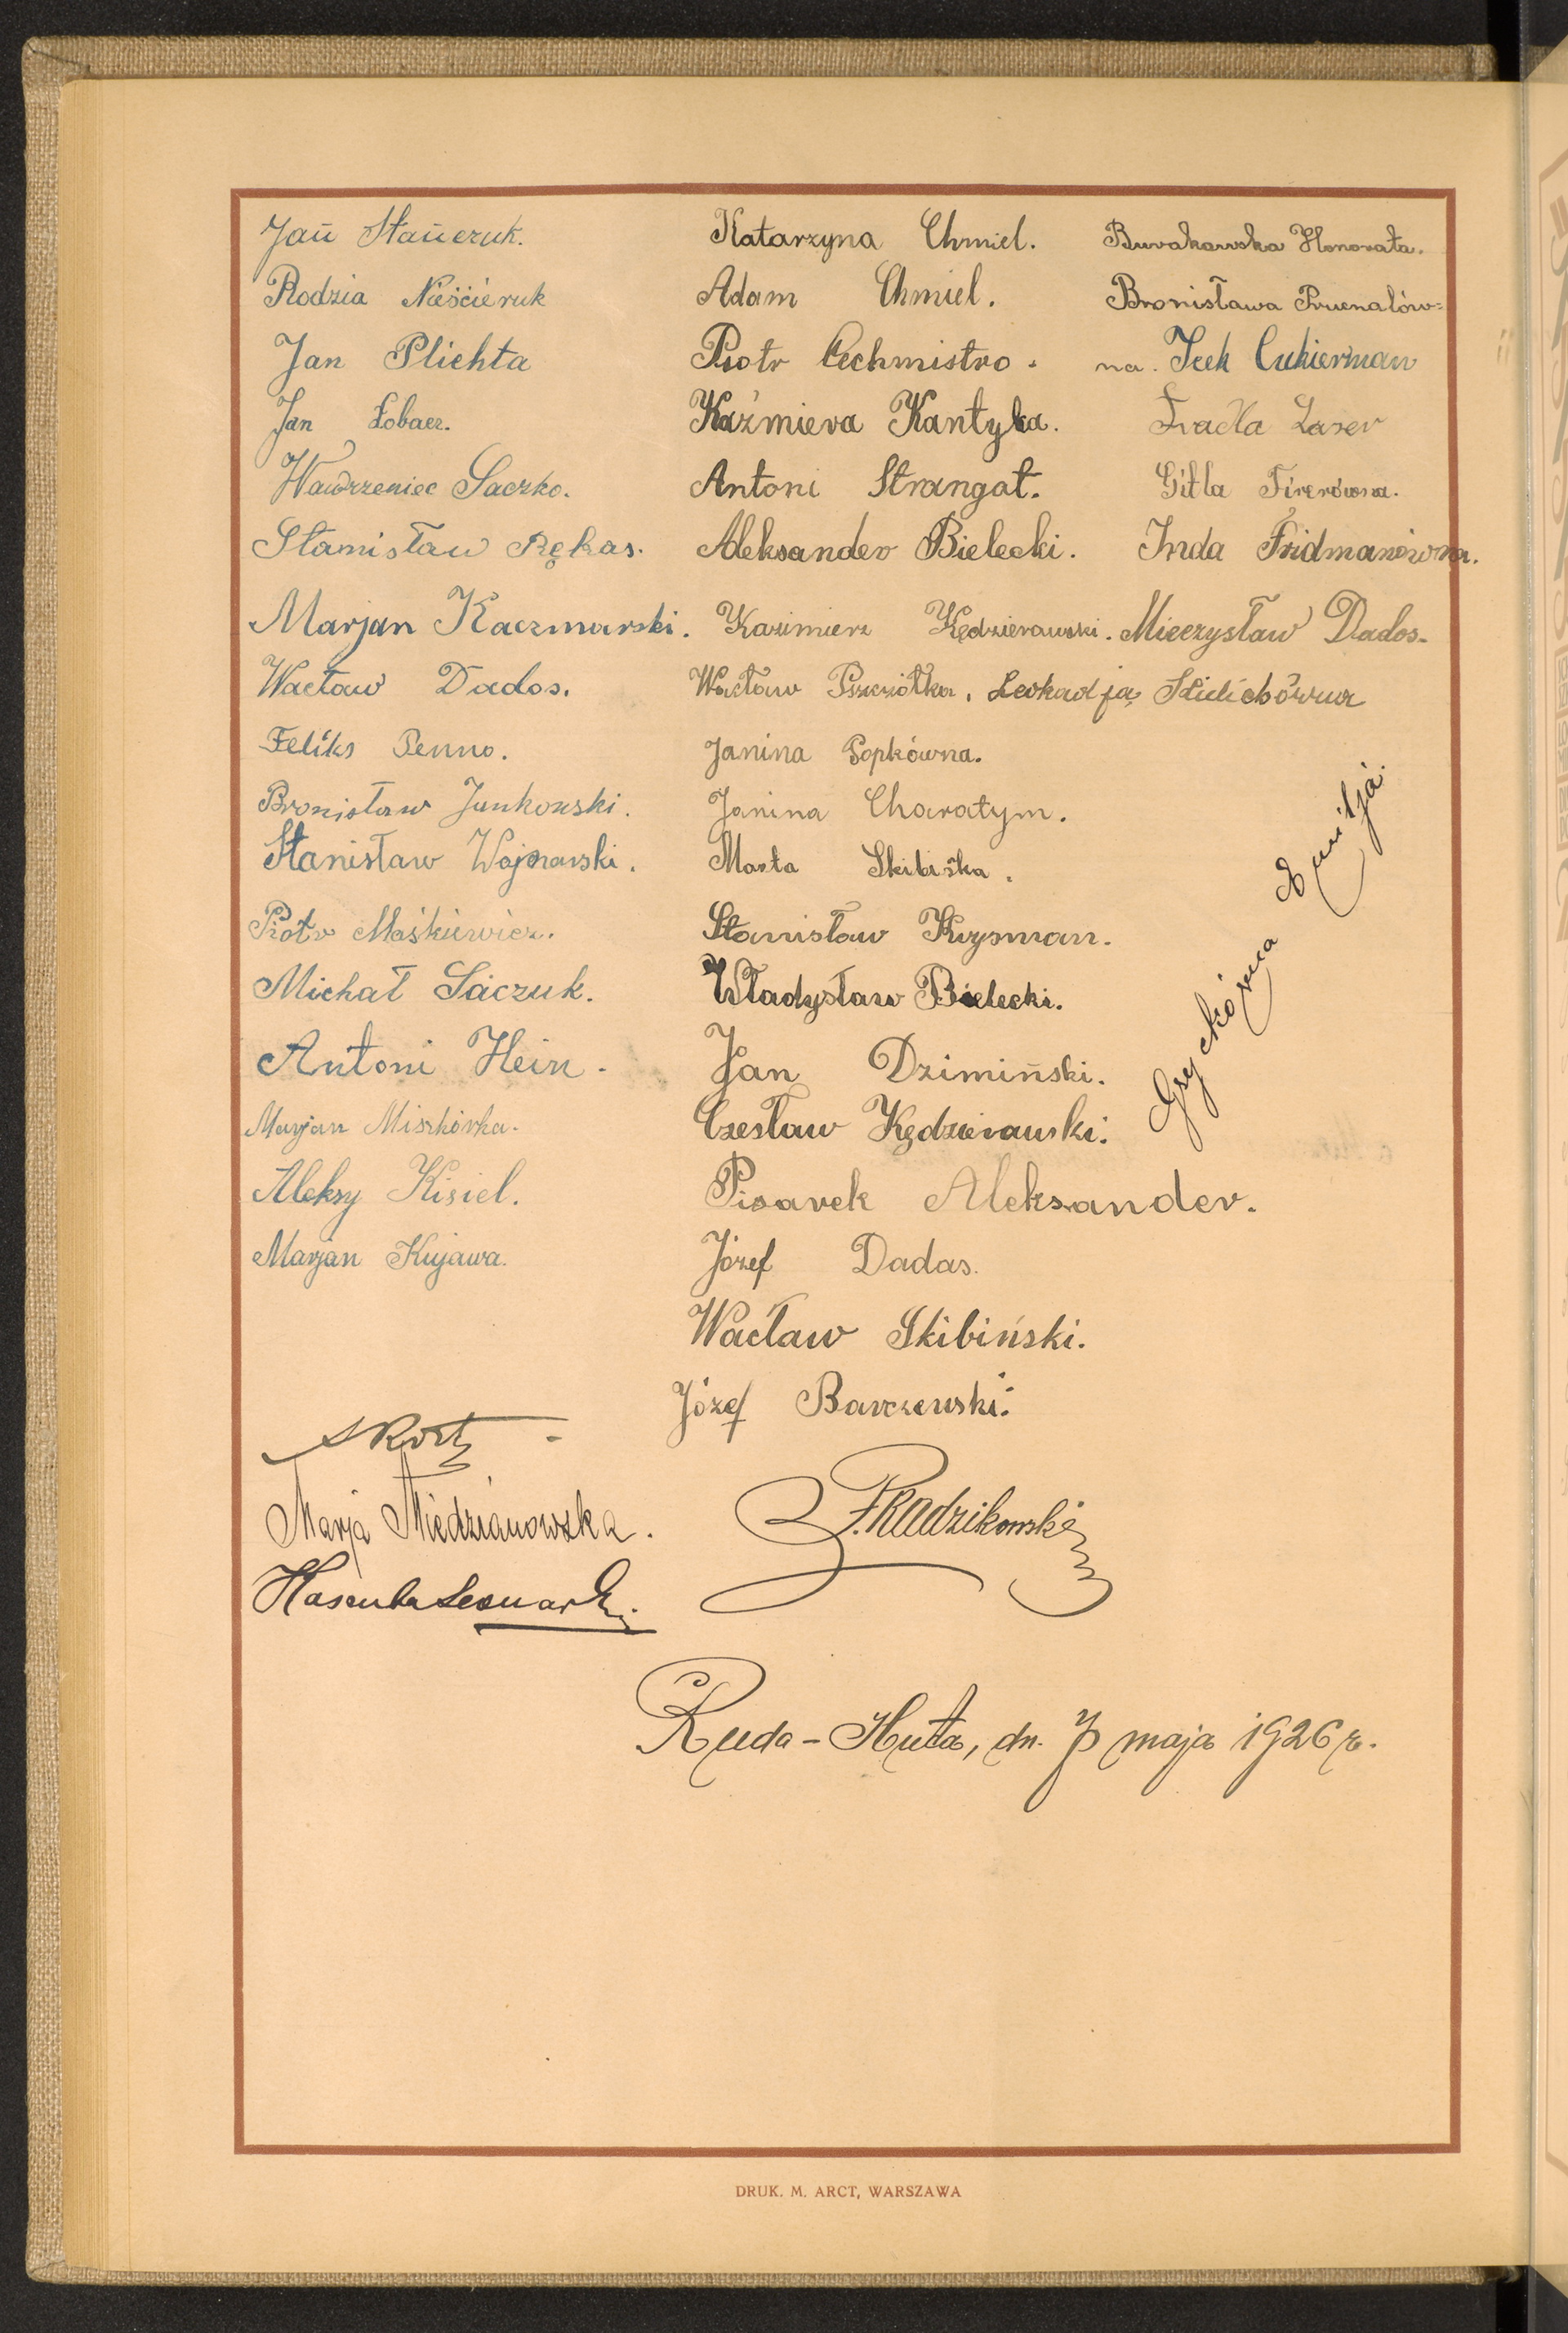 Jań Stańczuk.
Rodzia Nieścieruk
Jan Plichta
Jan Łobacz.
Wawrzeniec Saczko.
Stanisław Rękas.
Marjan Kaczmarski.
Wacław Dados.
Feliks Penno.
Bronisław Junkowski.
Stanisław Wojnarski.
Piotr Maśkiewicz.
Michał Saczuk.
Antoni Hein.
Marjan Miszkórka.
Aleksy Kisiel.
Marjan Kujawa.
Marja Miedzianowska.
Katarzyna Chmiel.
Adam Chmiel.
Piotr Cechmistro.
Kaźmiera Kantyka.
Antoni Strangat.
Aleksander Bielecki.
Kazimierz Kędzierawski.
Wacław Pszczółka.
Janina Popkówna.
Janina Charatym.
Marta Skibiśka.
Stanisław Krysman.
Władysław Bielecki.
Jan Dzimiński.
Czesław Kędzierauski.
Pisarek Aleksander.
Józef Dadas.
Wacław Skibiński.
Józef Barczewski.
F. Radzikowski
Burakowska Honorata.
Bronisława
na. Icek Cukierman
Laser
Gitla
Fridmanówna.
Mieczysław Dados.
Leokadja
Emilja.
Ruda-Huta, dn. 7 maja 1926 r.
DRUK. M. ARCT, WARSZAWA